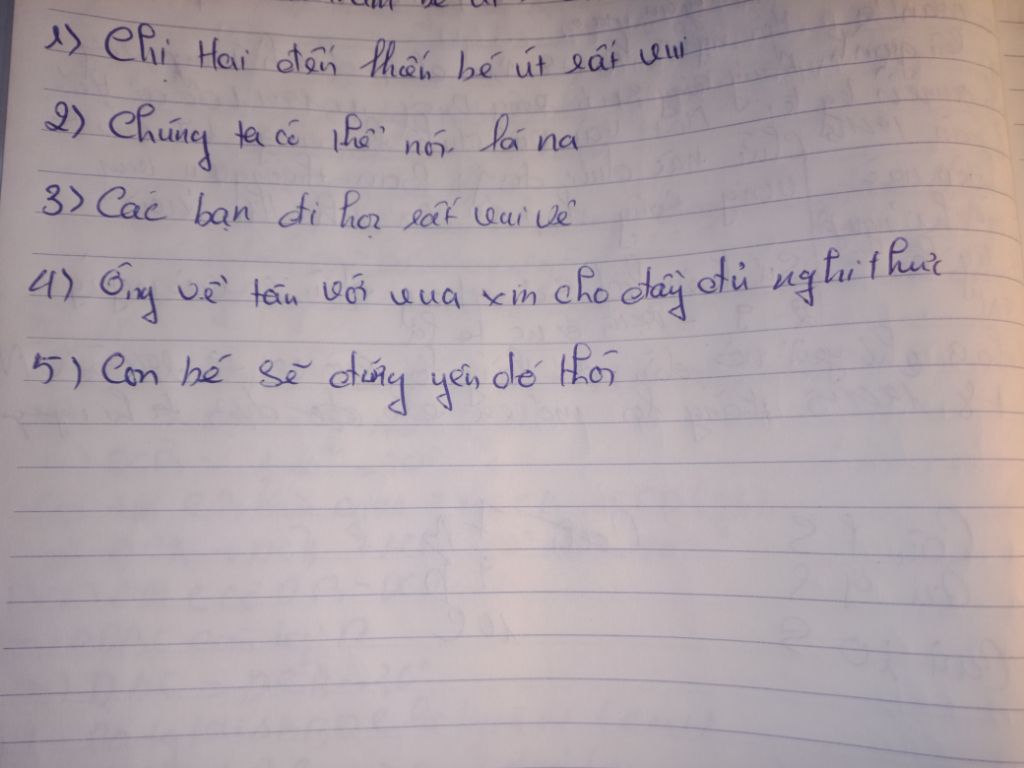 1) Chi Hai đến thiến bé út rất vui
2) Chúng ta có thể nói là na
3) Các bạn đi học rất vui vẻ
4) Ông về tấu với vua xin cho đầy đủ nghi thức
5) Con bé sẽ đứng yên đó thôi